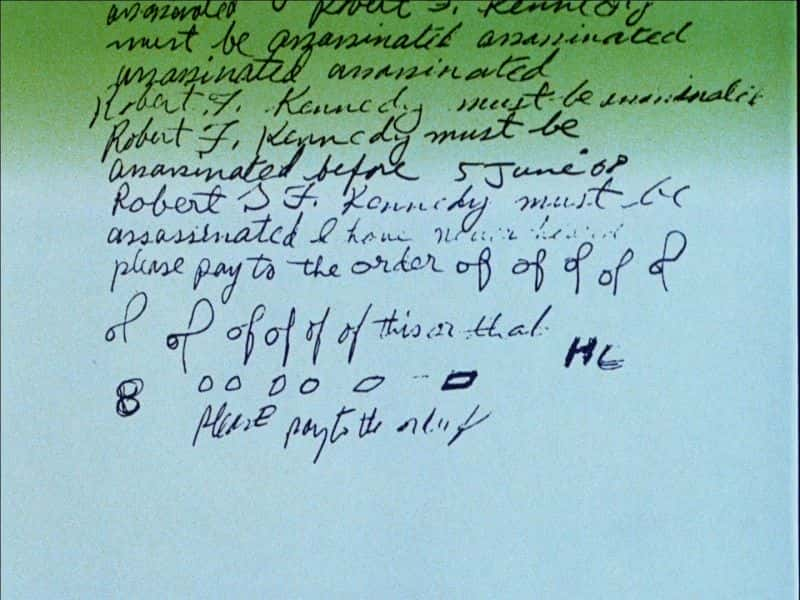 assassinated Robert F. Kennedy
must be assassinated assassinated
assassinated assassinated
Robert F. Kennedy must be assassinated
Robert F. Kennedy must be
assassinated before 5 June '68
Robert F. Kennedy must be
assassinated I have never heard
please pay to the order of of of of of
of of of of of of this or that
HC
8 0 0 0 0
please pay to the order of